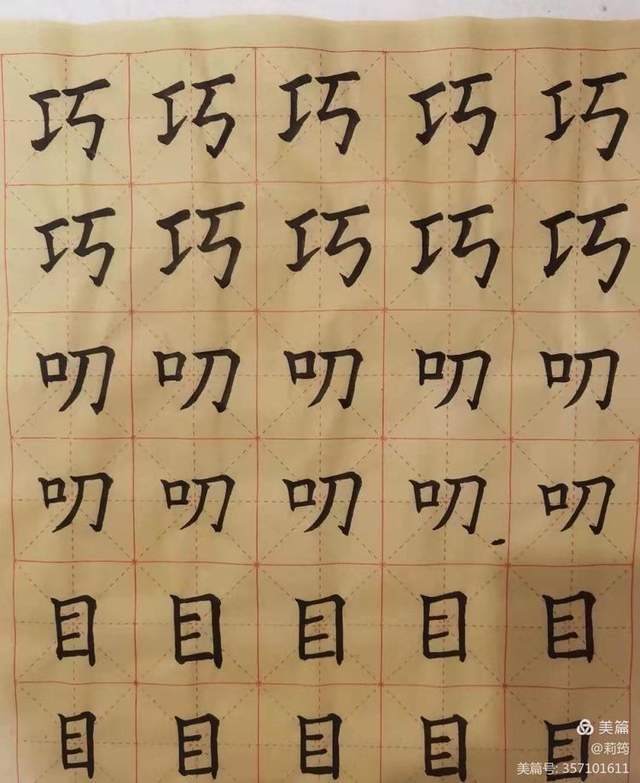 巧巧巧巧巧
巧巧巧巧巧
叨叨叨叨叨
叨叨叨叨叨
目目目目目
目目目目目
美篇
@莉筠
美篇号: 357101611